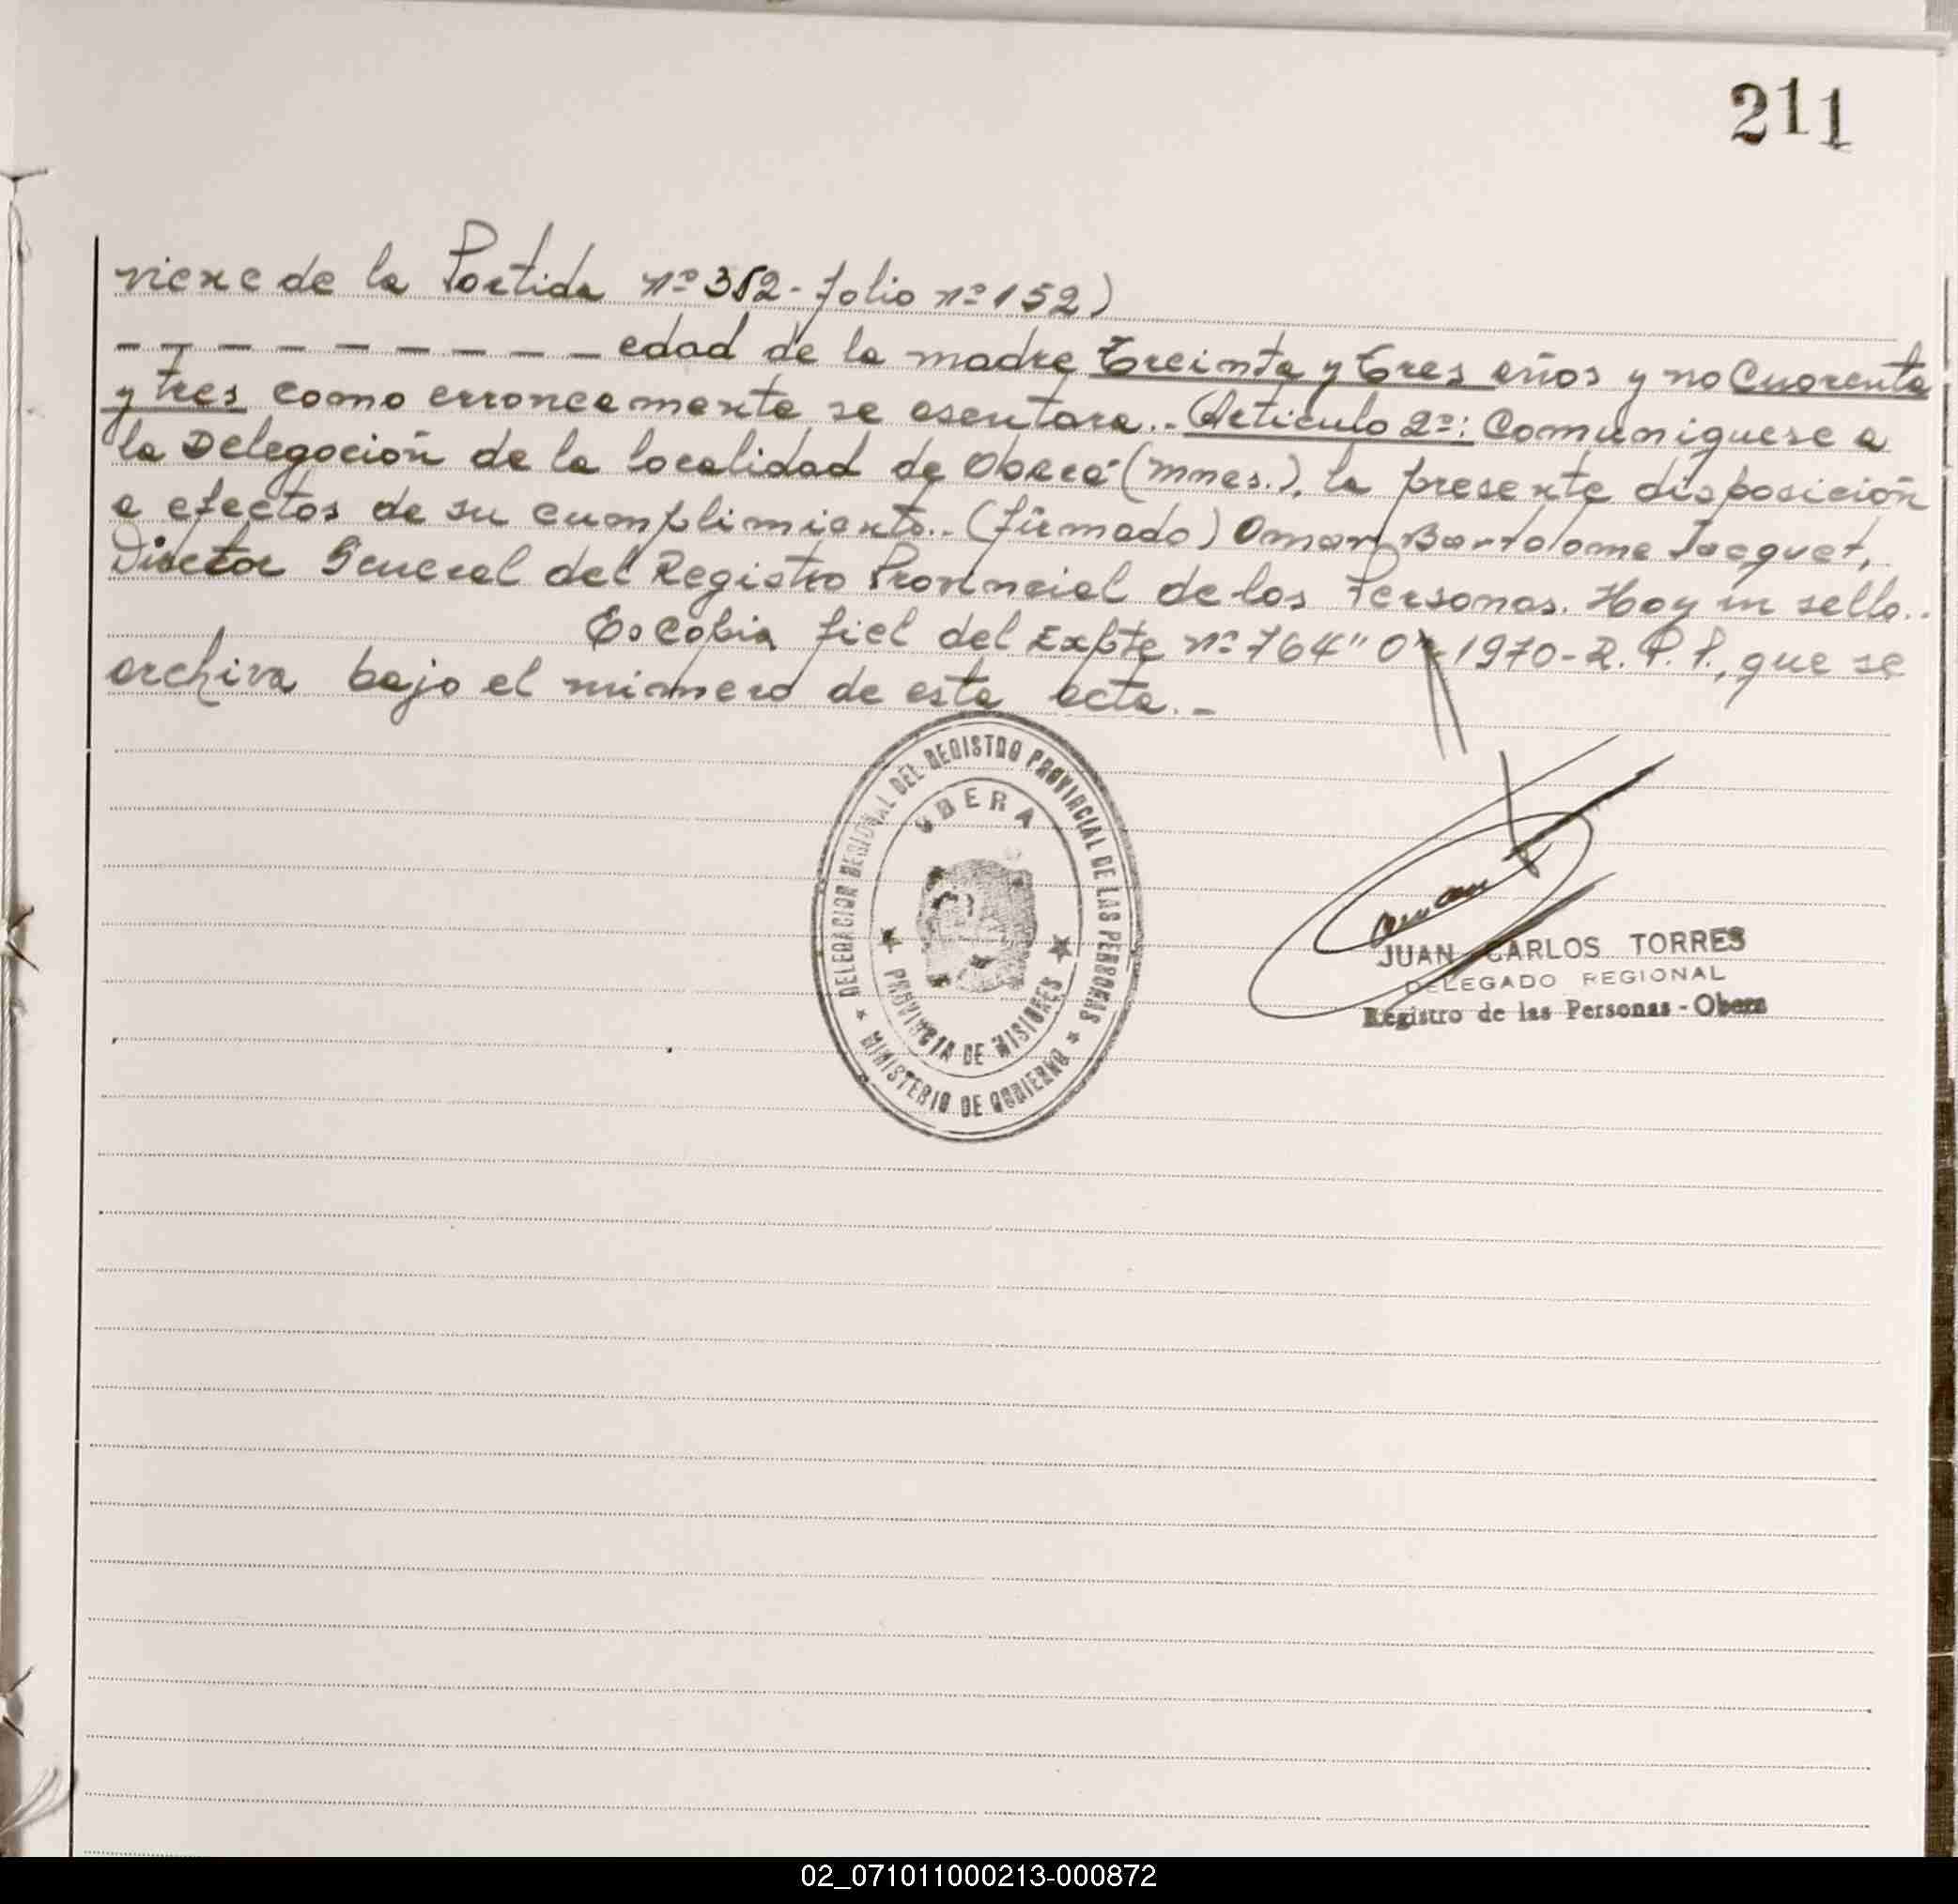 211
viene de la Partida nº 352 - folio nº 152)
— — — — — — — — — — edad de la madre Treinta y Tres años y no Cuarenta
y tres como erroneamente se asentara.. Articulo 2º: Comuniquese a
la Delegación de la localidad de Oberá (mnes.), la presente disposición
a efectos de su cumplimiento.. (firmado) Omar Bartolome Jacquet,
Director General del Registro Provincial de los Personas. Hay un sello..
Es Copia fiel del Expte nº 764" 1970 - R.P.P., que se
archiva bajo el número de esta acta.-
DELEGACION REGIONAL DEL REGISTRO PROVINCIAL DE LAS PERSONAS
OBERA
PROVINCIA DE MISIONES
MINISTERIO DE GOBIERNO
JUAN CARLOS TORRES
DELEGADO REGIONAL
Registro de las Personas - Obera
02_071011000213-000872